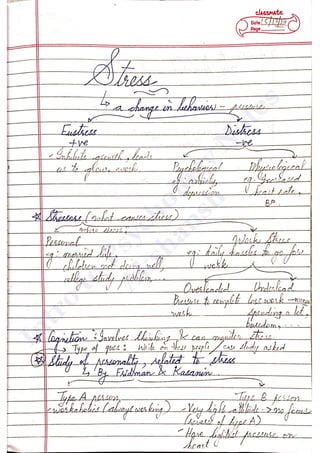 classmate
Date
Page
Stress
↳ a change in behavior - pressure
Eustress Distress
+ve -ve
growth, leads Psychological Physiological
us to glow, work eg: anxiety, eg: Increased
depression heart rate,
BP
* Stressors (what causes stress)
Personal Work Stress
eg: married life, eg: daily hassles to go for
children not doing well, work
college study problem...
Overloaded Underload
Pressure to complete less work
work spending a lot,
boredom, ...
* Cognition: Involves thinking & can monitor stress
↳ Type of ques: Write on these people / case study asked
* Study of personality, related to stress
↳ By Fridman &
Type A person Type B person
- workaholics (always working) - Very light attitude -> no focus
(reverse of type A)
- Have lightest pressure on
heart